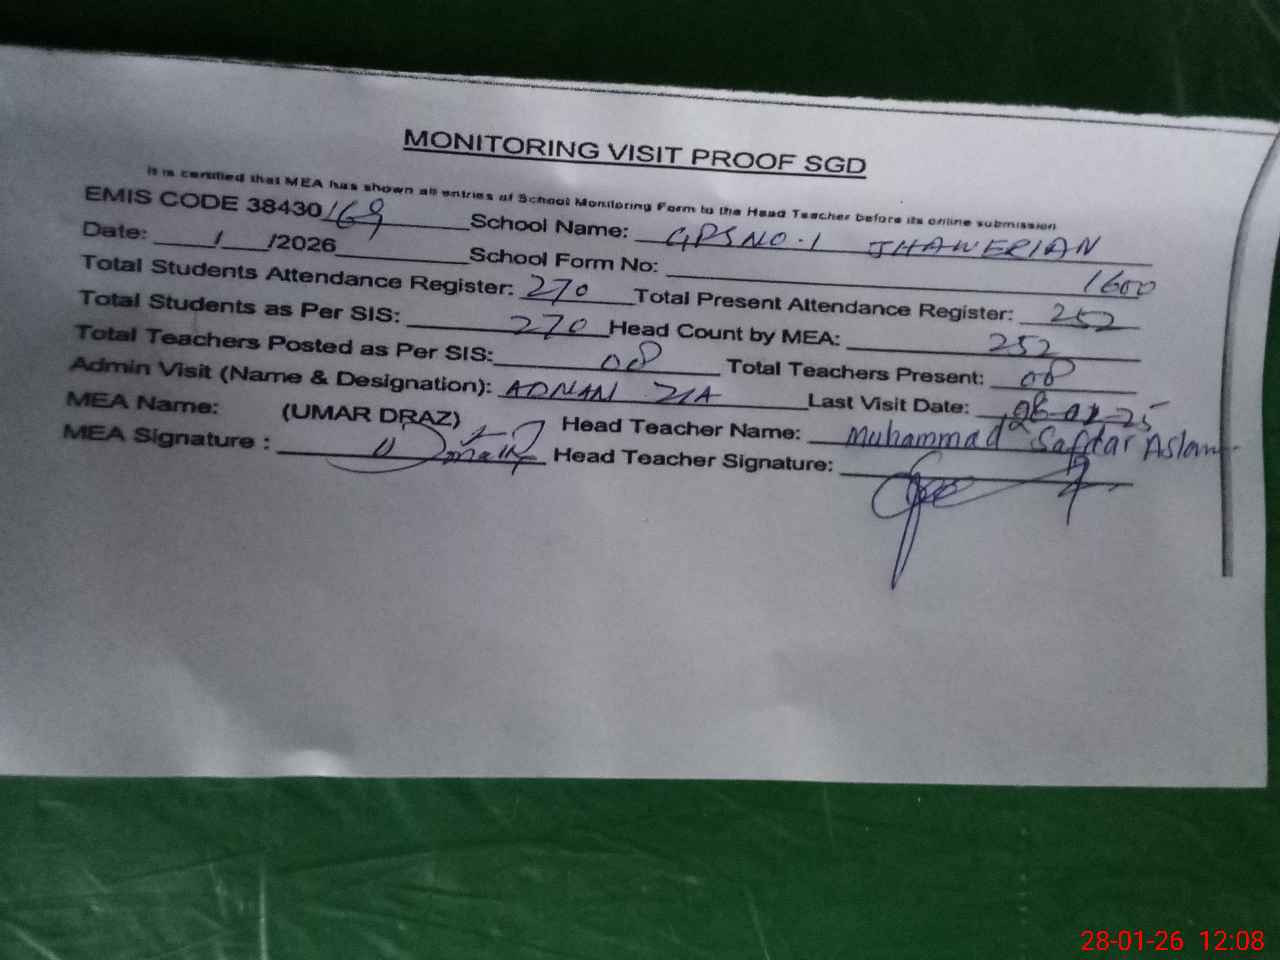 MONITORING VISIT PROOF SGD
It is certified that MEA has shown all entries of School Monitoring Form to the Head Teacher before its online submission
EMIS CODE 38430169 School Name: GPS NO.1 JHAWERIAN
Date: ___/___/2026 School Form No: 1600
Total Students Attendance Register: 270 Total Present Attendance Register: 252
Total Students as Per SIS: 270 Head Count by MEA: 252
Total Teachers Posted as Per SIS: 08 Total Teachers Present: 08
Admin Visit (Name & Designation): ADNAN ZIA Last Visit Date:
MEA Name: (UMAR DRAZ) Head Teacher Name: Muhammad Safdar Aslam
MEA Signature : Head Teacher Signature:
28-01-26 12:08